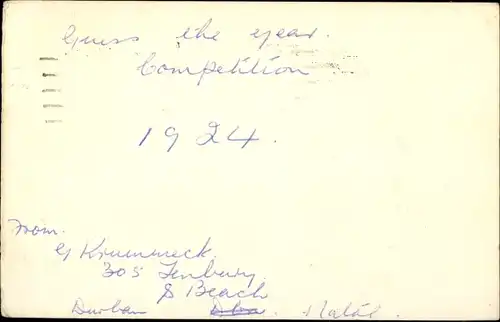 Guess the year.
Competition
1924.
From.
G Krummeck.
305 Tenbury.
S Beach
Durban Dbn. Natal.